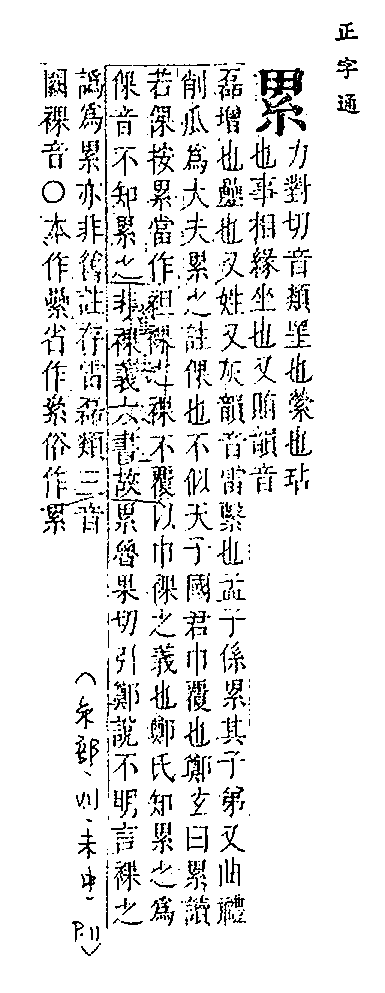 正字通
累
力對切音類罣也縈也玷
也事相緣坐也又賄韻音
磊增也𧗠也又姓又灰韻音雷繫也孟子係累其子弟又曲禮
削瓜爲大夫累之註倮也不似天子國君巾覆也鄭玄曰累讀
若倮按累當作袒裸之裸不覆以巾倮之義也鄭氏知累之爲
倮音不知累之非裸義六書故累魯果切引鄭說不明言裸之
譌爲累亦非舊註存雷磊類三音
闕裸音○本作纍省作絫俗作累
P.11